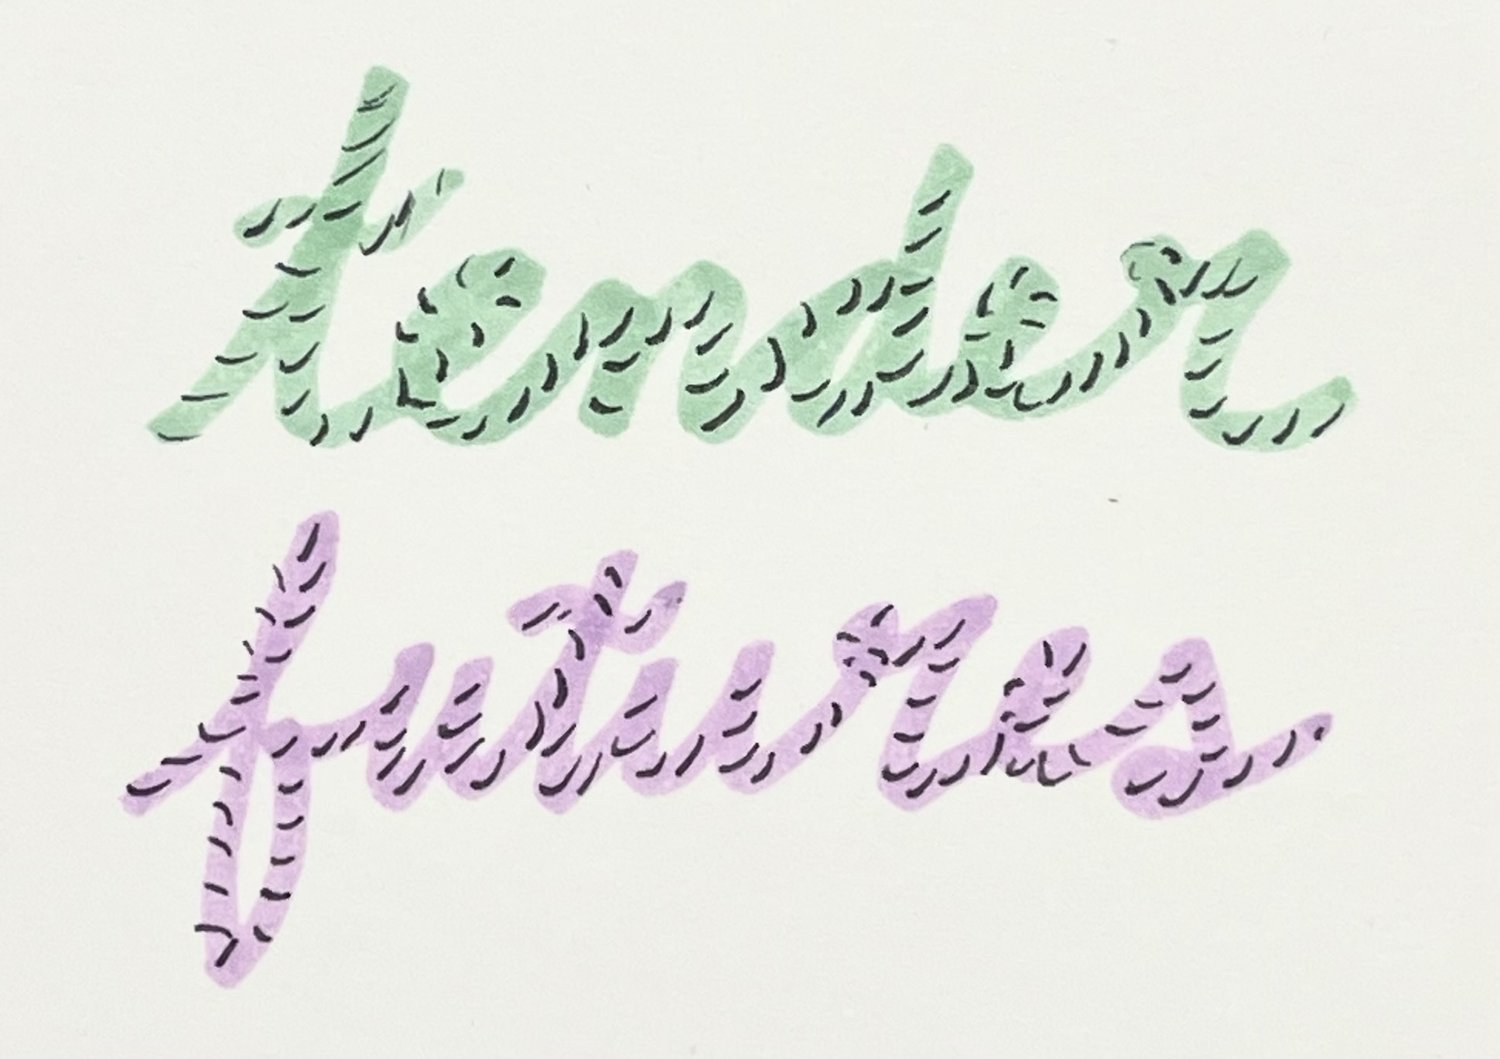 tender
futures